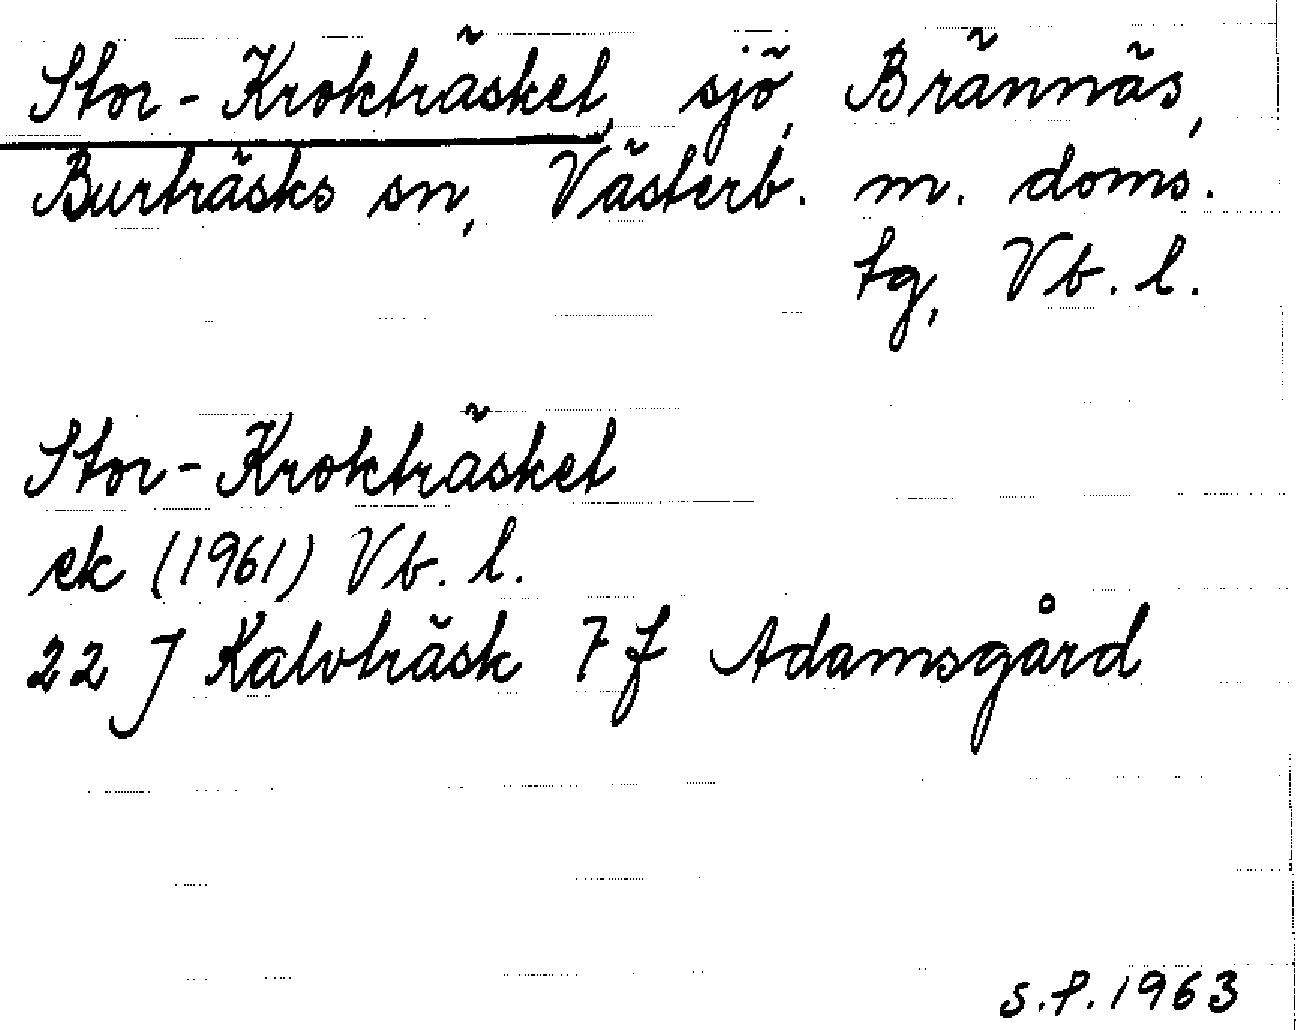 Stor-Krokträsket, sjö, Brännäs,
Burträsks sn, Västerb. m. doms.
tg, Vb. l.
Stor-Krokträsket
ek (1961) Vb. l.
22 J Kalvträsk 7 f Adamsgård
s.f. 1963